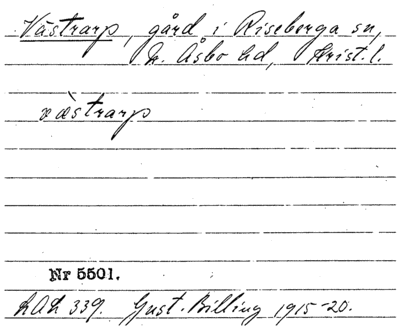 Västrarp, gård i Riseberga sn,
N. Åsbo hd, Krist. l.
væ̀strarp
Nr 5501.
LAL 339. Gust. Billing 1915-20.